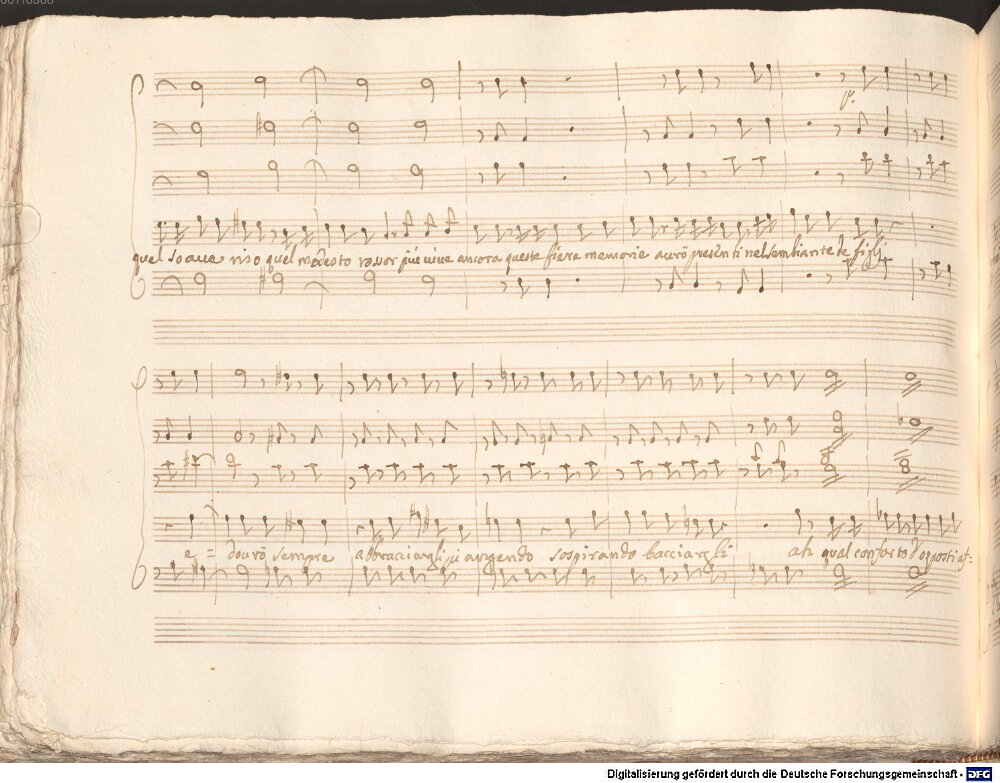 quel soave riso quel modesto rosor più vive ancora queste fiere memorie avrò presenti nel sembiante de figli
e = dovrò sempre abbracciargli piangendo sospirando bacciargli ah qual conforto d'opposti af=
Digitalisierung gefördert durch die Deutsche Forschungsgemeinschaft - DFG